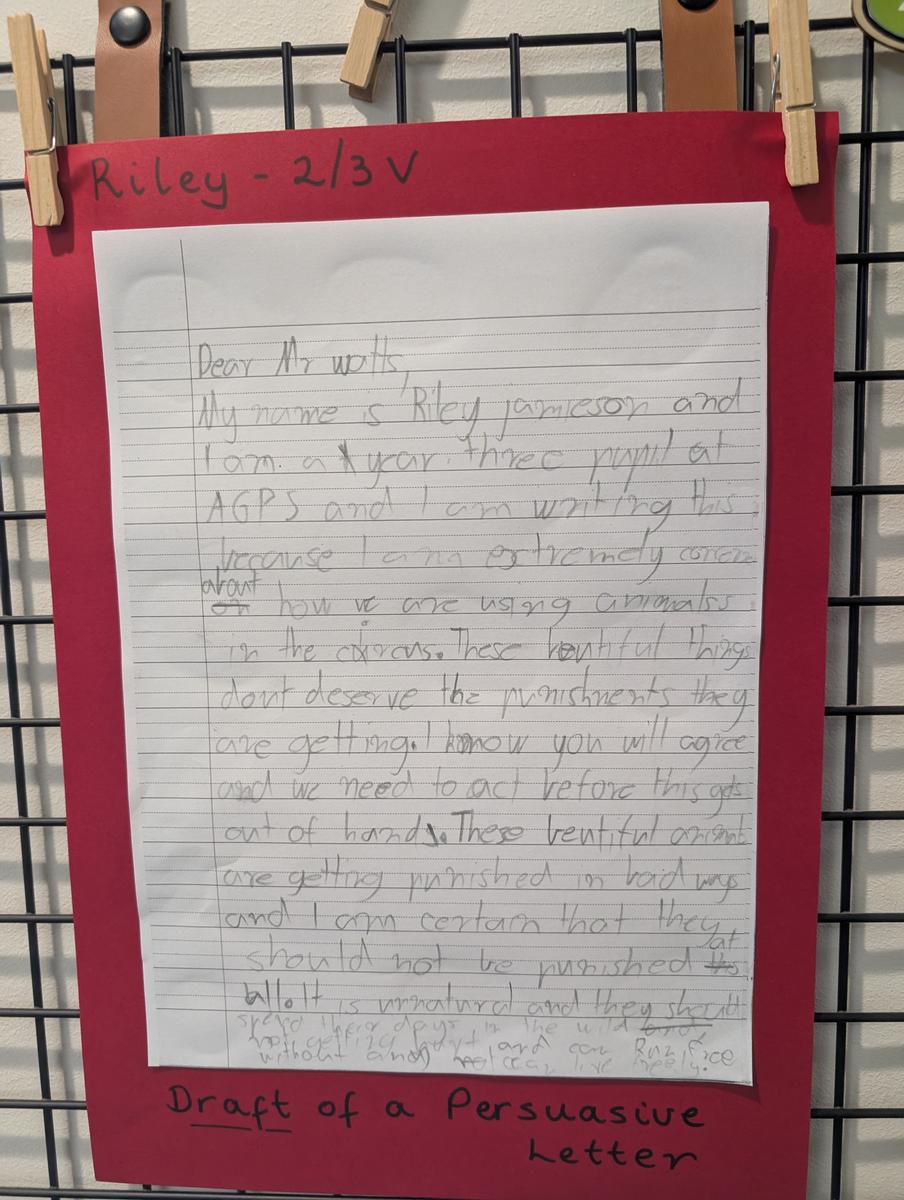 Riley - 2/3 V
Dear Mr watts,
My name is Riley jamieson and
I am. a year. three pupil at
AGPS and I am writing this
because I am extremely concern
about
on how we are using animalss
in the circus. These beutiful things
dont deserve the punishments they
are getting. I know you will agree
and we need to act before this gets
out of hand. These beutiful animals
are getting punished in bad ways
and I am certain that they
should not be punished at
all. It is unnatural and they should
spend their days in the wild and
not getting hurt and can Run free
without and can live freely.
Draft of a Persuasive
Letter